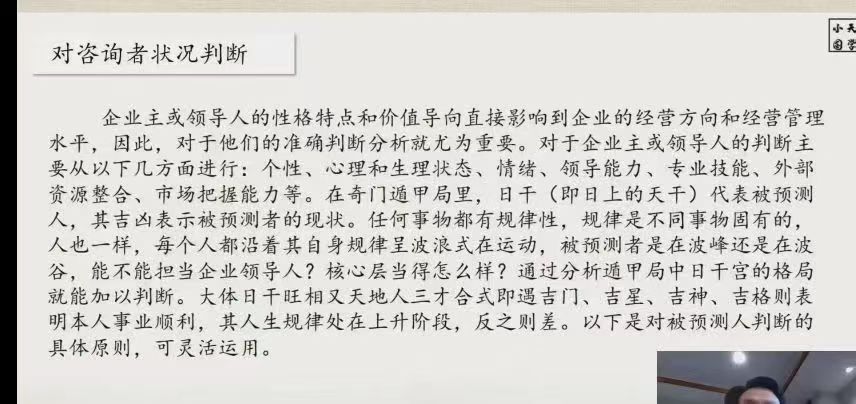 小天
国学
对咨询者状况判断
企业主或领导人的性格特点和价值导向直接影响到企业的经营方向和经营管理
水平，因此，对于他们的准确判断分析就尤为重要。对于企业主或领导人的判断主
要从以下几方面进行：个性、心理和生理状态、情绪、领导能力、专业技能、外部
资源整合、市场把握能力等。在奇门遁甲局里，日干（即日上的天干）代表被预测
人，其吉凶表示被预测者的现状。任何事物都有规律性，规律是不同事物固有的，
人也一样，每个人都沿着其自身规律呈波浪式在运动，被预测者是在波峰还是在波
谷，能不能担当企业领导人？核心层当得怎么样？通过分析遁甲局中日干宫的格局
就能加以判断。大体日干旺相又天地人三才合式即遇吉门、吉星、吉神、吉格则表
明本人事业顺利，其人生规律处在上升阶段，反之则差。以下是对被预测人判断的
具体原则，可灵活运用。